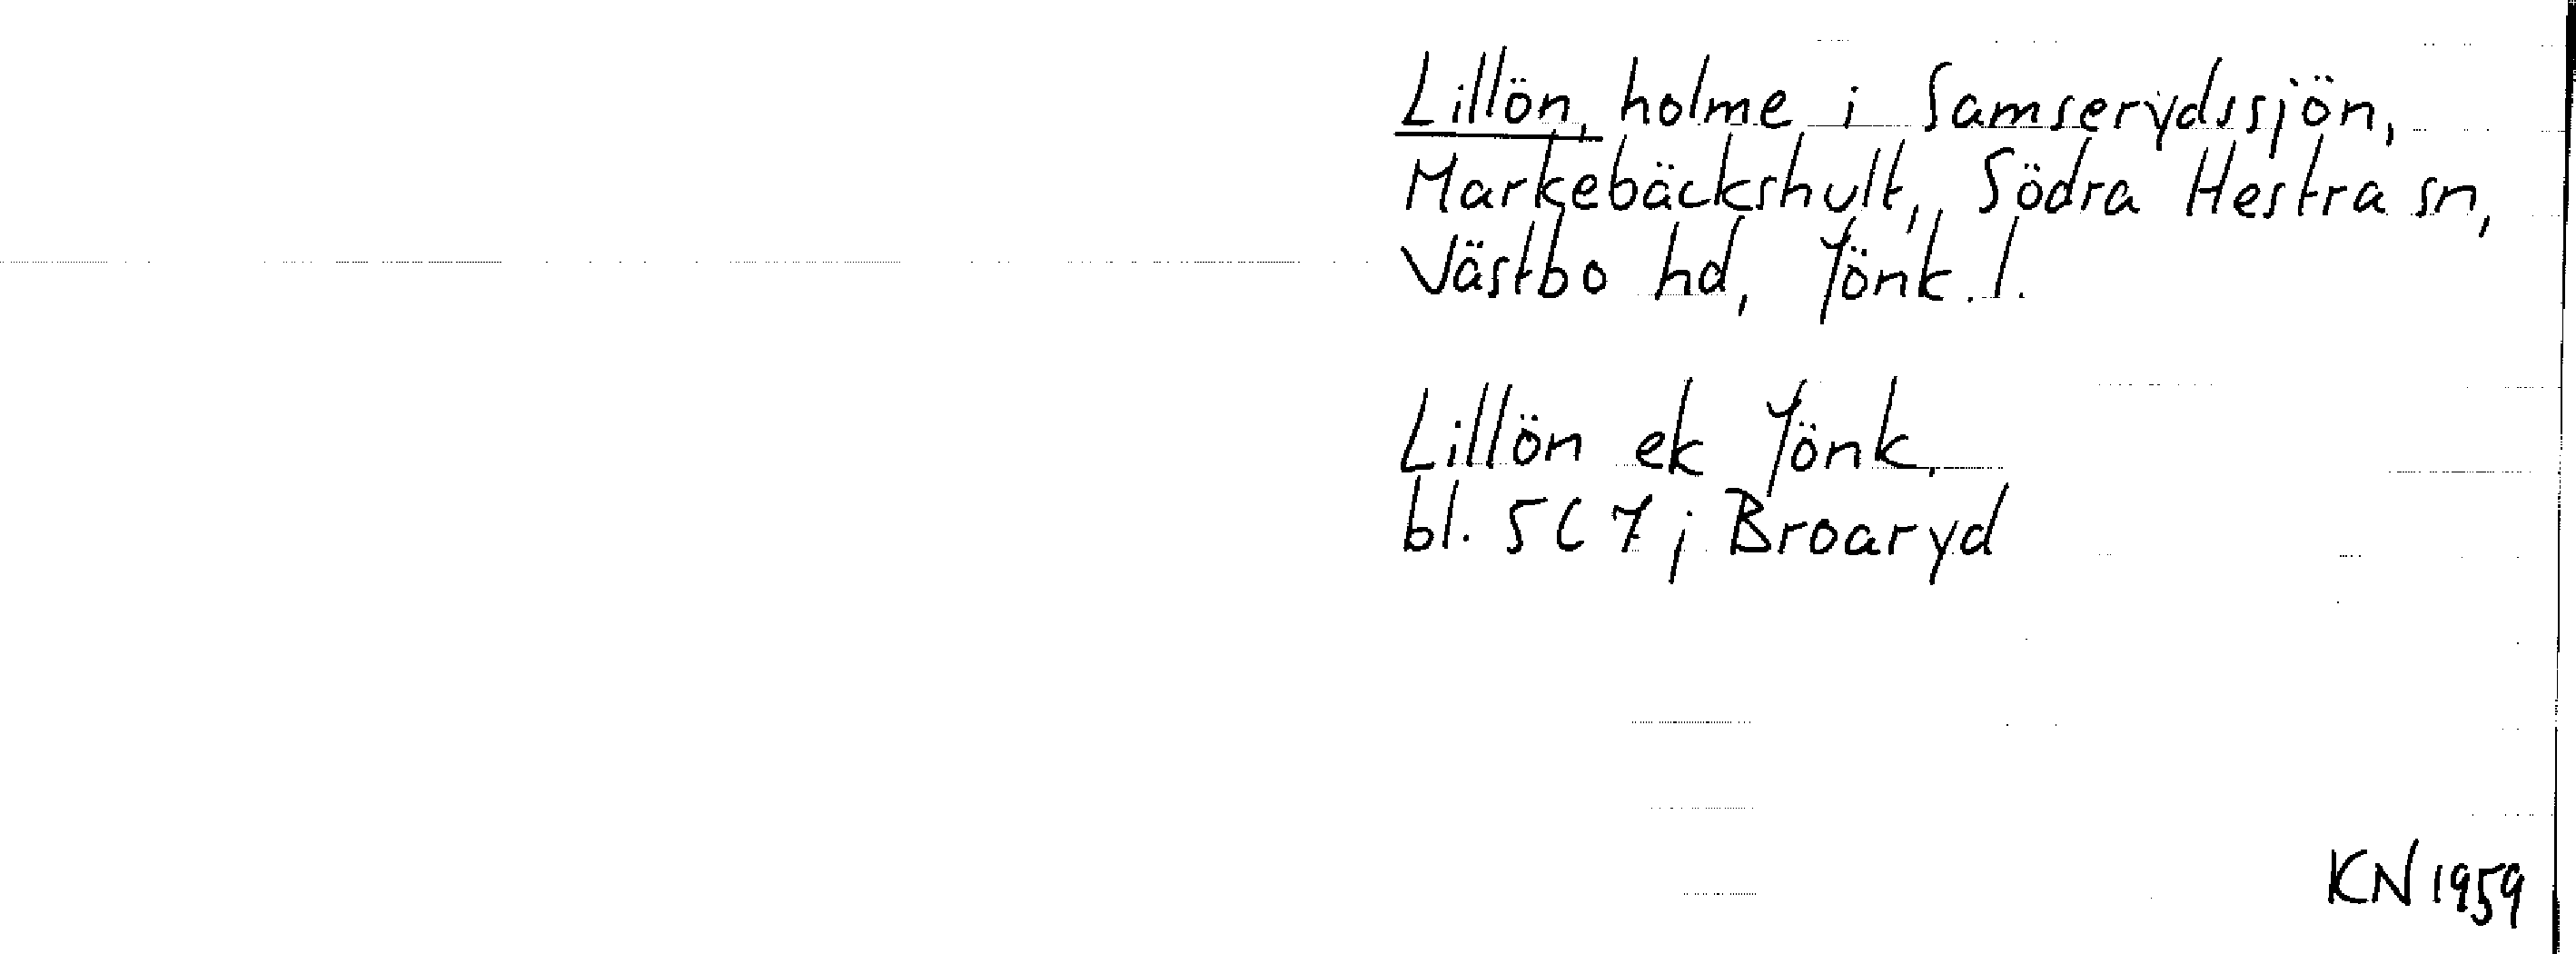 Lillön, holme i Samserydssjön,
Markebäckshult, Södra Hestra sn,
Västbo hd, Jönk. l.
Lillön ek Jönk.
bl. 5C 7; Broaryd
KN 1959